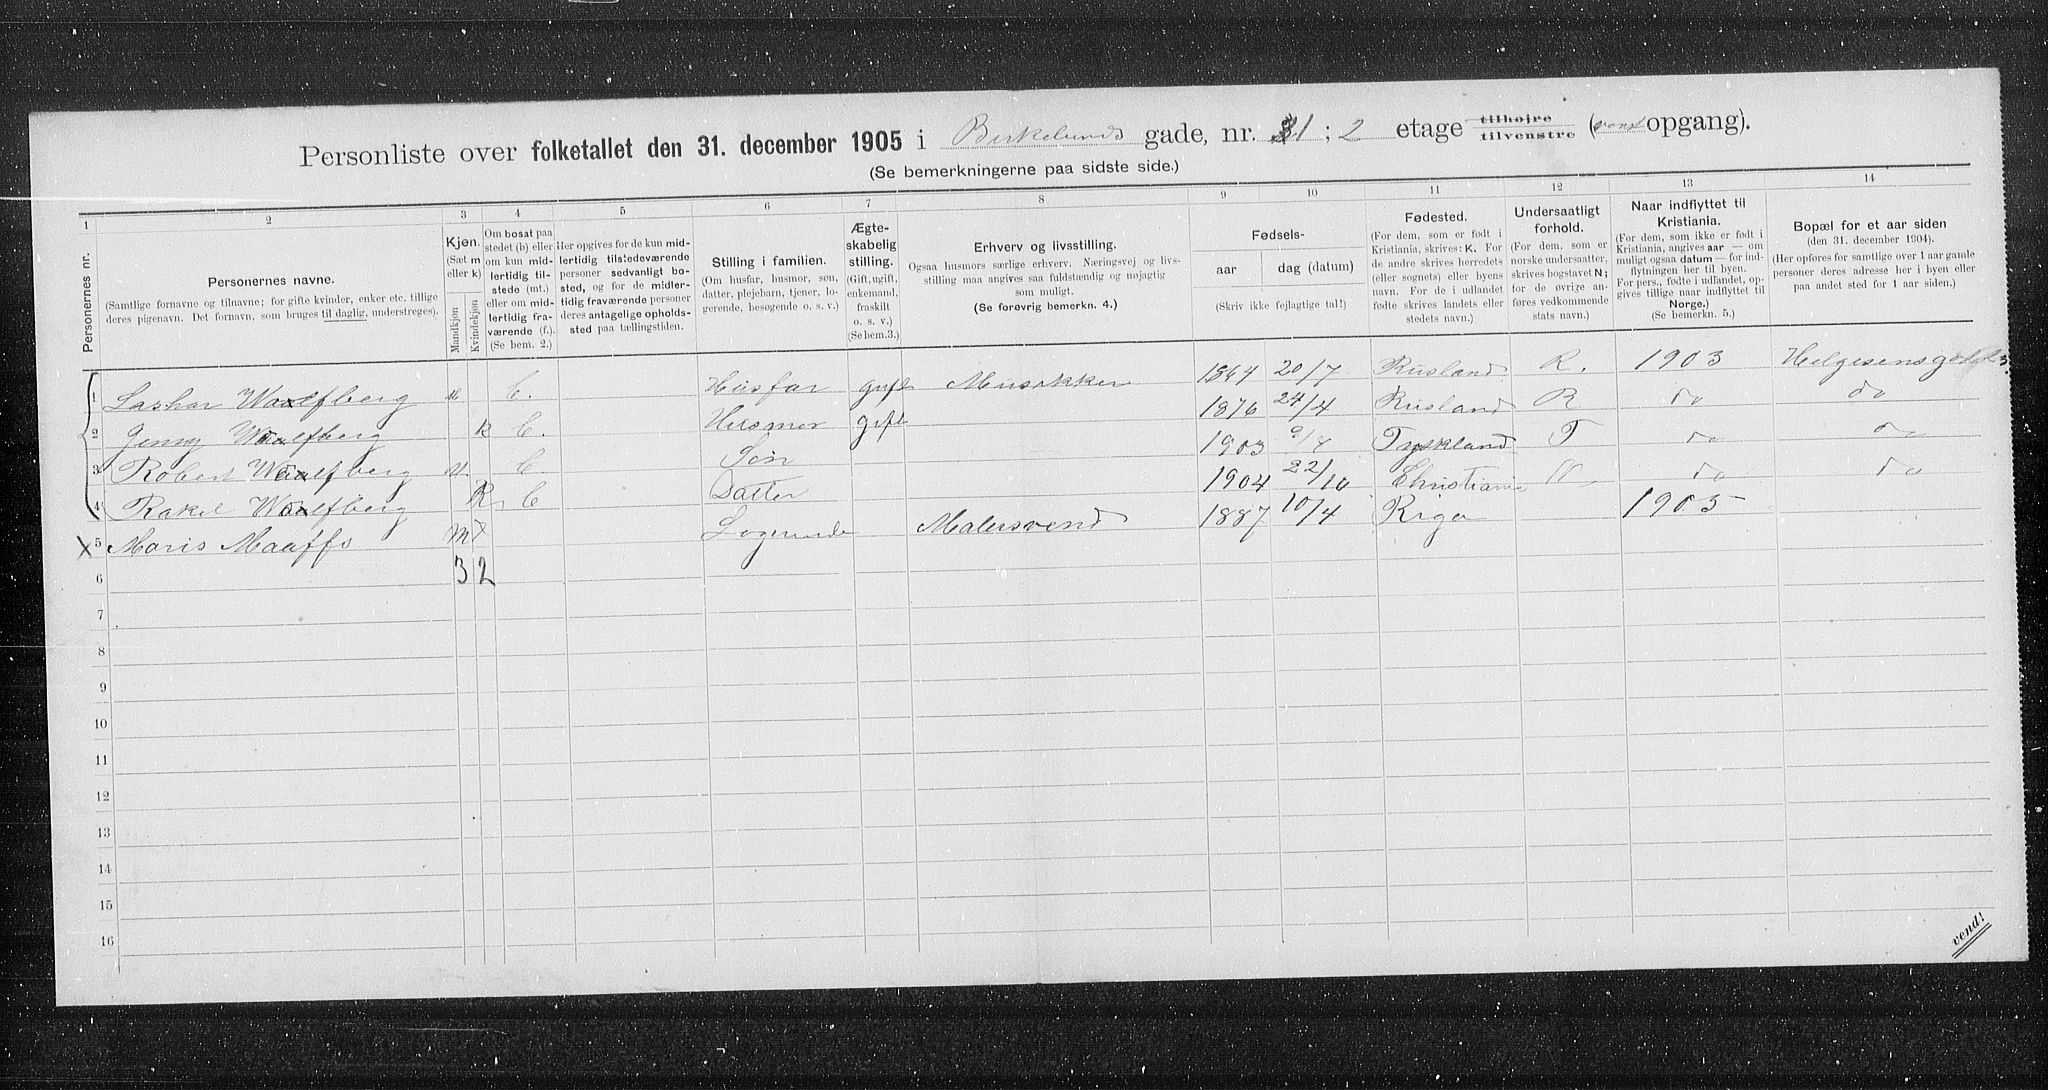 Personliste over folketallet den 31. december 1905 i Birkelunds gade, nr. 31 ; 2 etage tilhøjre tilvenstre (vens opgang).
(Se bemerkningerne paa sidste side.)
1 2 3 4 5 6 7 8 9 10 11 12 13 14
Personernes nr.
Personernes navne.
(Samtlige fornavne og tilnavne; for gifte kvinder, enker etc. tillige
deres pigenavn. Det fornavn, som bruges til daglig, understreges).
Kjøn.
(Sæt m
eller k)
Mandkjøn
Kvindekjøn
Om bosat paa
stedet (b) eller
om kun mid-
lertidig til-
stede (mt.)
eller om mid-
lertidig fra-
værende (f.).
(Se bem. 2.)
Her opgives for de kun mid-
lertidig tilstedeværende
personer sedvanligt bo-
sted, og for de midler-
tidig fraværende personer
deres antagelige opholds-
sted paa tællingstiden.
Stilling i familien.
(Om husfar, husmor, søn,
datter, plejebarn, tjener, lo-
gerende, besøgende o. s. v.)
Ægte-
skabelig
stilling.
(Gift, ugift,
enkemand,
fraskilt
o. s. v.)
(Se bem.3.)
Erhverv og livsstilling.
Ogsaa husmors særlige erhverv. Næringsvej og livs-
stilling maa angives saa fuldstændig og nøjagtig
som muligt.
(Se forøvrig bemerkn. 4.)
Fødsels-
aar dag (datum)
(Skriv ikke fejlagtige tal!)
Fødested.
(For dem, som er født i
Kristiania, skrives: K. For
de andre skrives herredets
(eller sognets) eller byens
navn. For de i udlandet
fødte skrives landets eller
stedets navn.)
Undersaatligt
forhold.
(For dem, som er
norske undersatter,
skrives bogstavet N;
for de øvrige an-
føres vedkommende
stats navn.)
Naar indflyttet til
Kristiania.
(For dem, som ikke er født i
Kristiania, angives aar — om
muligt ogsaa datum — for ind-
flytningen her til byen.
For pers., fødte i udlandet, op-
gives tillige naar indflyttet til
Norge.)
(Se bemerkn. 5.)
Bopæl for et aar siden
(den 31. december 1904).
(Her opføres for samtlige over 1 aar gamle
personer deres adresse her i byen eller
paa andet sted for 1 aar siden.)
1 Lashar Waalfberg m b. Husfar gift Musikker 1864 20/7 Rusland R. 1903 Helgesensgd 23
2 Jenny Waalfberg k b. Husmor gift 1876 24/4 Rusland R do do
3 Robert Waalfberg m b. Søn 1903 9/8 Tyskland T do do
4 Rakel Waalfberg k b Datter 1904 22/10 Christiania N do do
X 5 Moris Maaffs m x Logerende Malersvend 1887 10/4 Riga 1905
6 3 2
7
8
9
10
11
12
13
14
15
16
vend!